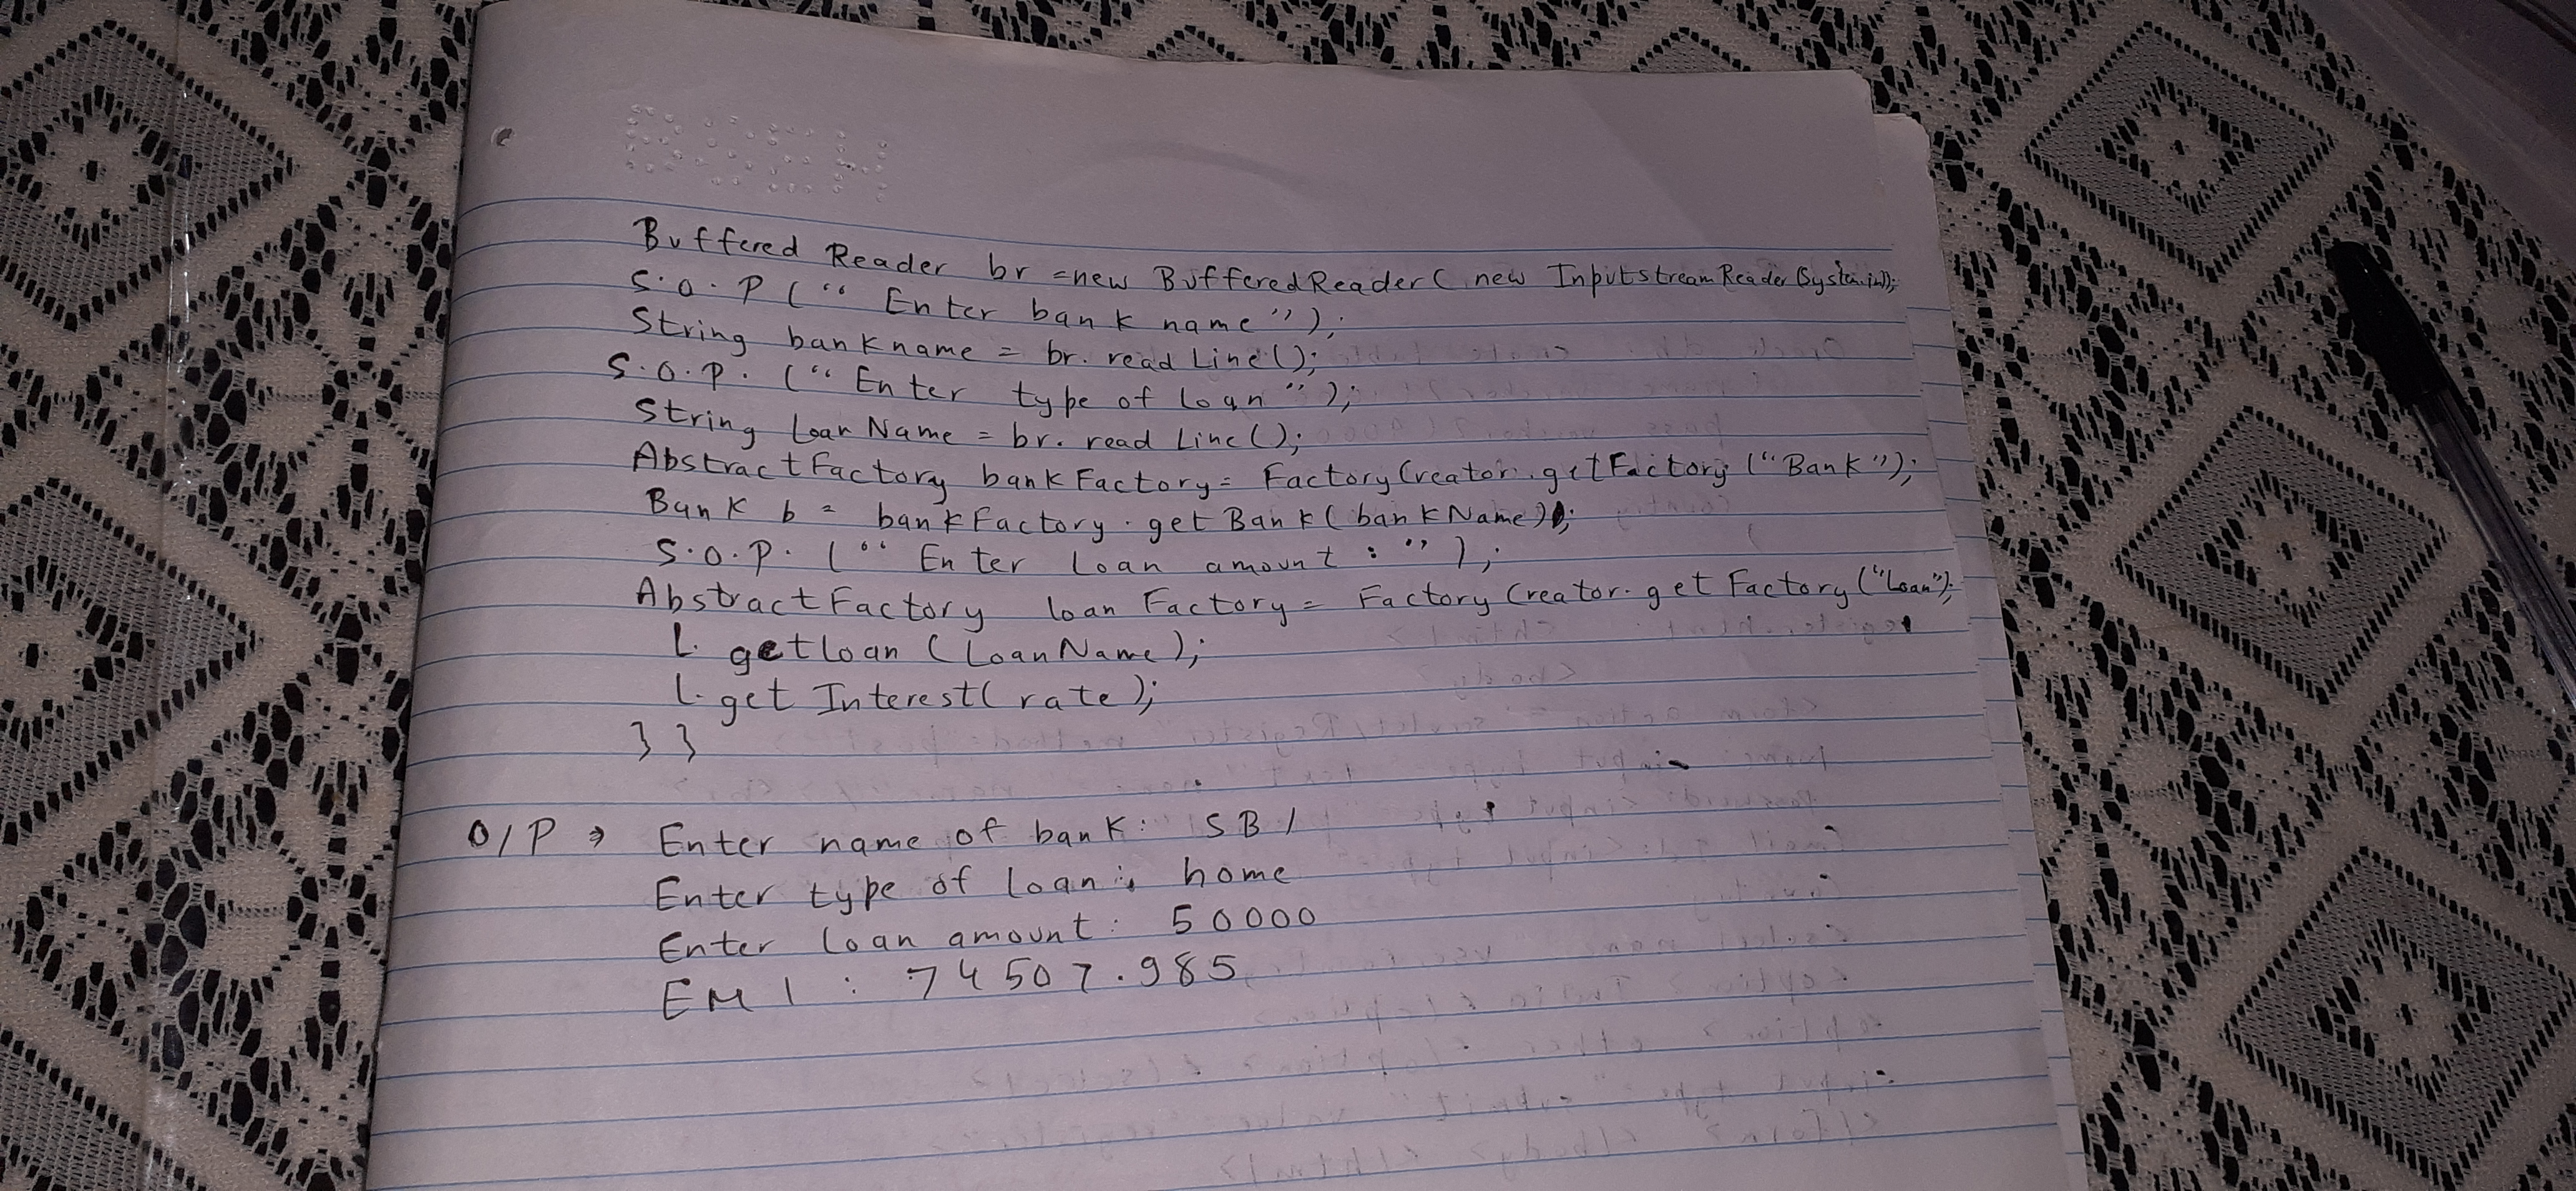 Buffered Reader br = new BufferedReader ( new InputstreamReader (System.in));
S.O.P (" Enter bank name");
String bankname = br. read Line();
S.O.P. (" Enter type of loan ");
String Loan Name = br. read Line();
AbstractFactory bankFactory = FactoryCreator.getFactory ("Bank");
Bank b = bankFactory. get Bank ( bankName);
S.O.P. (" Enter Loan amount : ");
AbstractFactory loan Factory = Factory Creator. get Factory ("Loan");
l. getloan ( LoanName);
l. get Interest( rate );
} }
O/P → Enter name of bank: SBI
Enter type of loan: home
Enter loan amount: 50000
EMI : 74507.985